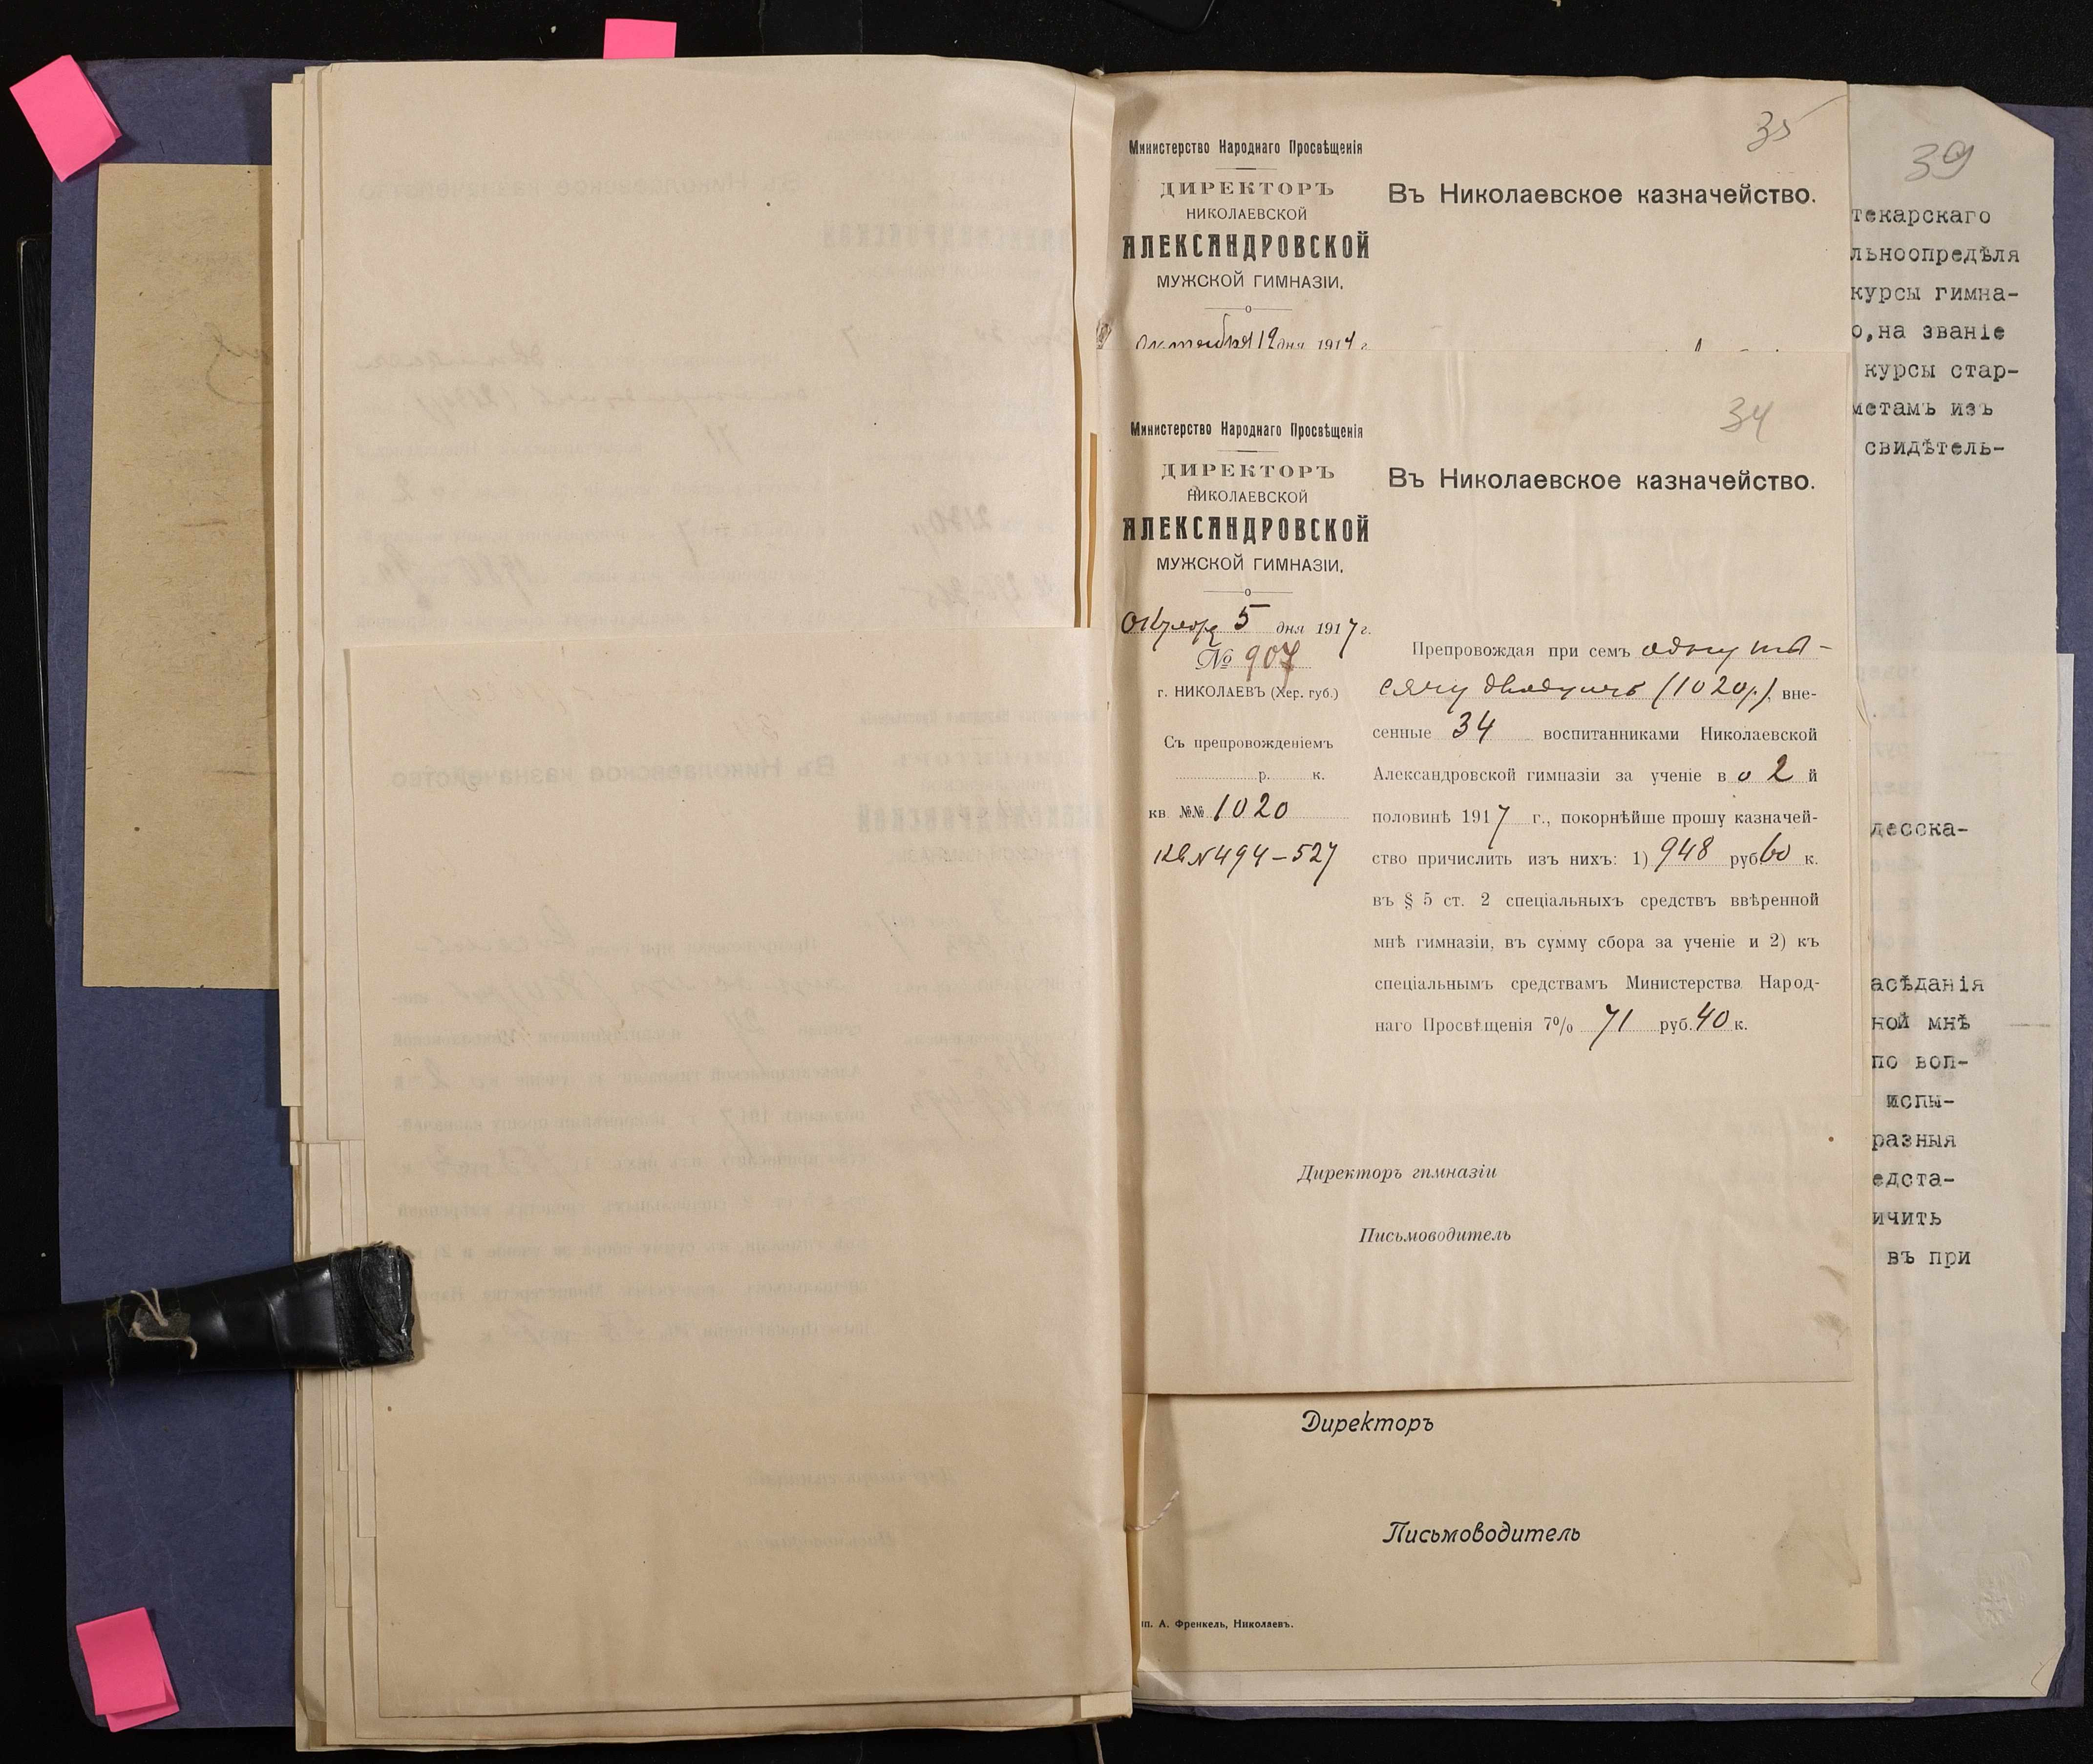 35
Министерство Народнаго Просвѣщенія
ДИРЕКТОРЪ
НИКОЛАЕВСКОЙ
АЛЕКСАНДРОВСКОЙ
МУЖСКОЙ ГИМНАЗІИ.
Въ Николаевское казначейство.
Октября 19 дня 1917 г.
34
Министерство Народнаго Просвѣщенія
ДИРЕКТОРЪ
НИКОЛАЕВСКОЙ
АЛЕКСАНДРОВСКОЙ
МУЖСКОЙ ГИМНАЗІИ.
Октября 5 дня 1917 г.
№ 907
г. НИКОЛАЕВЪ (Хер. губ.)
Съ препровожденіемъ
р. к.
кв. №№ 1020
кв N 494–527
Въ Николаевское казначейство.
Препровождая при семъ одну ты-
сячу двадцать (1020р.), вне-
сенные 34 воспитанниками Николаевской
Александровской гимназіи за ученіе в о 2 й
половинѣ 1917 г., покорнѣйше прошу казначей-
ство причислить изъ нихъ: 1) 948 руб 60 к.
въ § 5 ст. 2 спеціальныхъ средствъ ввѣренной
мнѣ гимназіи, въ сумму сбора за ученіе и 2) къ
спеціальнымъ средствамъ Министерства Народ-
наго Просвѣщенія 7% 71 руб. 40 к.
Директоръ гимназіи
Письмоводитель
Директоръ
Письмоводитель
ип. А. Френкель, Николаевъ.
39
текарскаго
льноопредѣля
курсы гимна-
о,на званіе
курсы стар-
метамъ изъ
свидѣтель-
десска-
асѣданія
ной мнѣ
по воп-
испы-
разныя
едста-
ичить
въ при